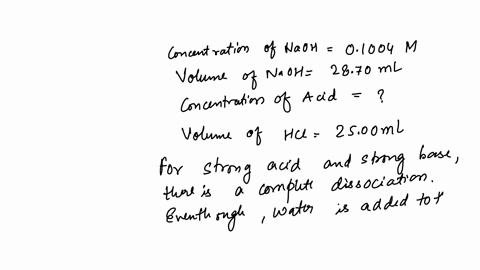 Concentration of NaOH = 0.1004 M
Volume of NaOH = 28.70 mL
Concentration of Acid = ?
Volume of HCl = 25.00mL
For strong acid and strong base,
there is a complete dissociation.
Eventhough, water is added to t